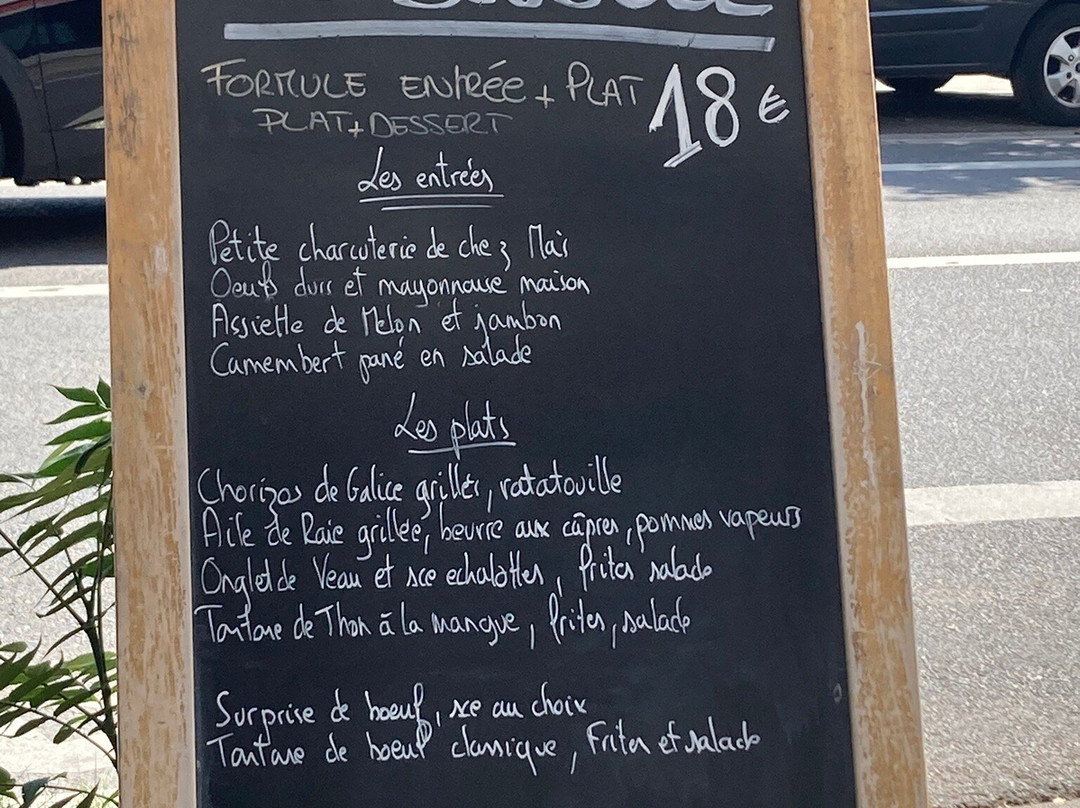 FORMULE ENTRÉE + PLAT 18 €
PLAT + DESSERT
Les entrées
Petite charcuterie de chez Maïs
Oeufs durs et mayonnaise maison
Assiette de Melon et jambon
Camembert pané en salade
Les plats
Chorizos de Galice grillés, ratatouille
Aile de Raie grillée, beurre aux câpres, pommes vapeurs
Onglet de Veau et sce echalottes, frites salade
Tartare de Thon à la mangue, frites, salade
Surprise de boeuf, sce au choix
Tartare de boeuf classique, Frites et salade